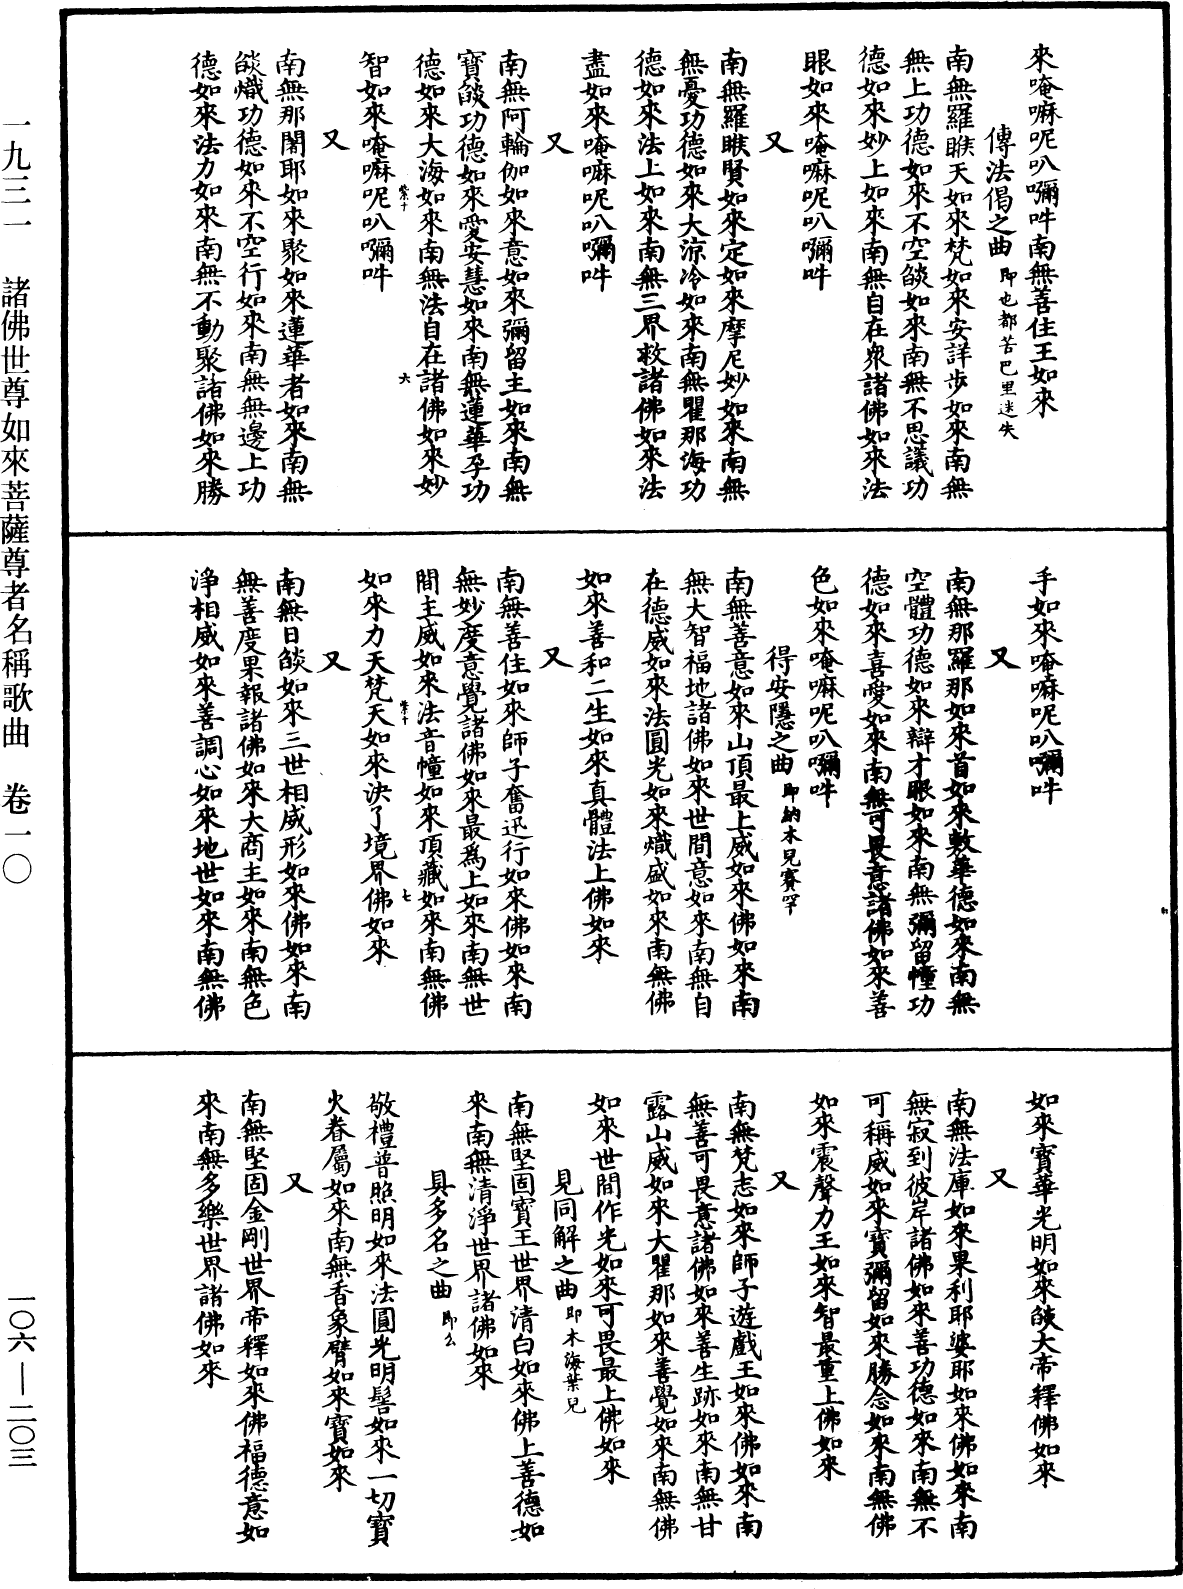 來唵嘛呢叭彌吽南無善住王如來
傳法偈之曲 即也都苦巴里迷失
南無羅睺天如來梵如來安詳步如來南無
無上功德如來不空燄如來南無不思議功
德如來妙上如來南無自在衆諸佛如來法
眼如來唵嘛呢叭彌吽
又
南無羅睺賢如來定如來摩尼妙如來南無
無憂功德如來大涼冷如來南無瞿那海功
德如來法上如來南無三界救諸佛如來法
盡如來唵嘛呢叭彌吽
又
南無阿輪伽如來意如來彌留主如來南無
寶燄功德如來愛安慧如來南無蓮華孕功
德如來大海如來南無法自在諸佛如來妙
紫十 六
智如來唵嘛呢叭彌吽
又
南無那闍耶如來聚如來蓮華者如來南無
燄熾功德如來不空行如來南無無邊上功
德如來法力如來南無不動聚諸佛如來勝
手如來唵嘛呢叭彌吽
又
南無那羅那如來首如來敷華德如來南無
空體功德如來辯才眼如來南無彌留幢功
德如來喜愛如來南無可畏意諸佛如來善
色如來唵嘛呢叭彌吽
得安隱之曲 即納木兒賽罕
南無善意如來山頂最上威如來佛如來南
無大智福地諸佛如來世間意如來南無自
在德威如來法圓光如來熾盛如來南無佛
如來善和二生如來真體法上佛如來
又
南無善住如來師子奮迅行如來佛如來南
無妙度意覺諸佛如來最爲上如來南無世
間主威如來法音幢如來頂藏如來南無佛
紫十 七
如來力天梵天如來決了境界佛如來
又
南無日燄如來三世相威形如來佛如來南
無善度果報諸佛如來大商主如來南無色
淨相威如來善調心如來地世如來南無佛
如來寶華光明如來燄大帝釋佛如來
又
南無法庫如來果利耶婆耶如來佛如來南
無寂到彼岸諸佛如來善功德如來南無不
可稱威如來寶彌留如來勝念如來南無佛
如來震聲力王如來智最重上佛如來
又
南無梵志如來師子遊戲王如來佛如來南
無善可畏意諸佛如來善生跡如來南無甘
露山威如來大瞿那如來善覺如來南無佛
如來世間作光如來可畏最上佛如來
見同解之曲 即木海葉兒
南無堅固寶王世界清白如來佛上善德如
來南無清淨世界諸佛如來
具多名之曲 即么
敬禮普照明如來法圓光明髻如來一切寶
火眷屬如來南無香象臂如來寶如來
又
南無堅固金剛世界帝釋如來佛福德意如
來南無多樂世界諸佛如來
一九三一 諸佛世尊如來菩薩尊者名稱歌曲 卷一〇 一〇六—二〇三